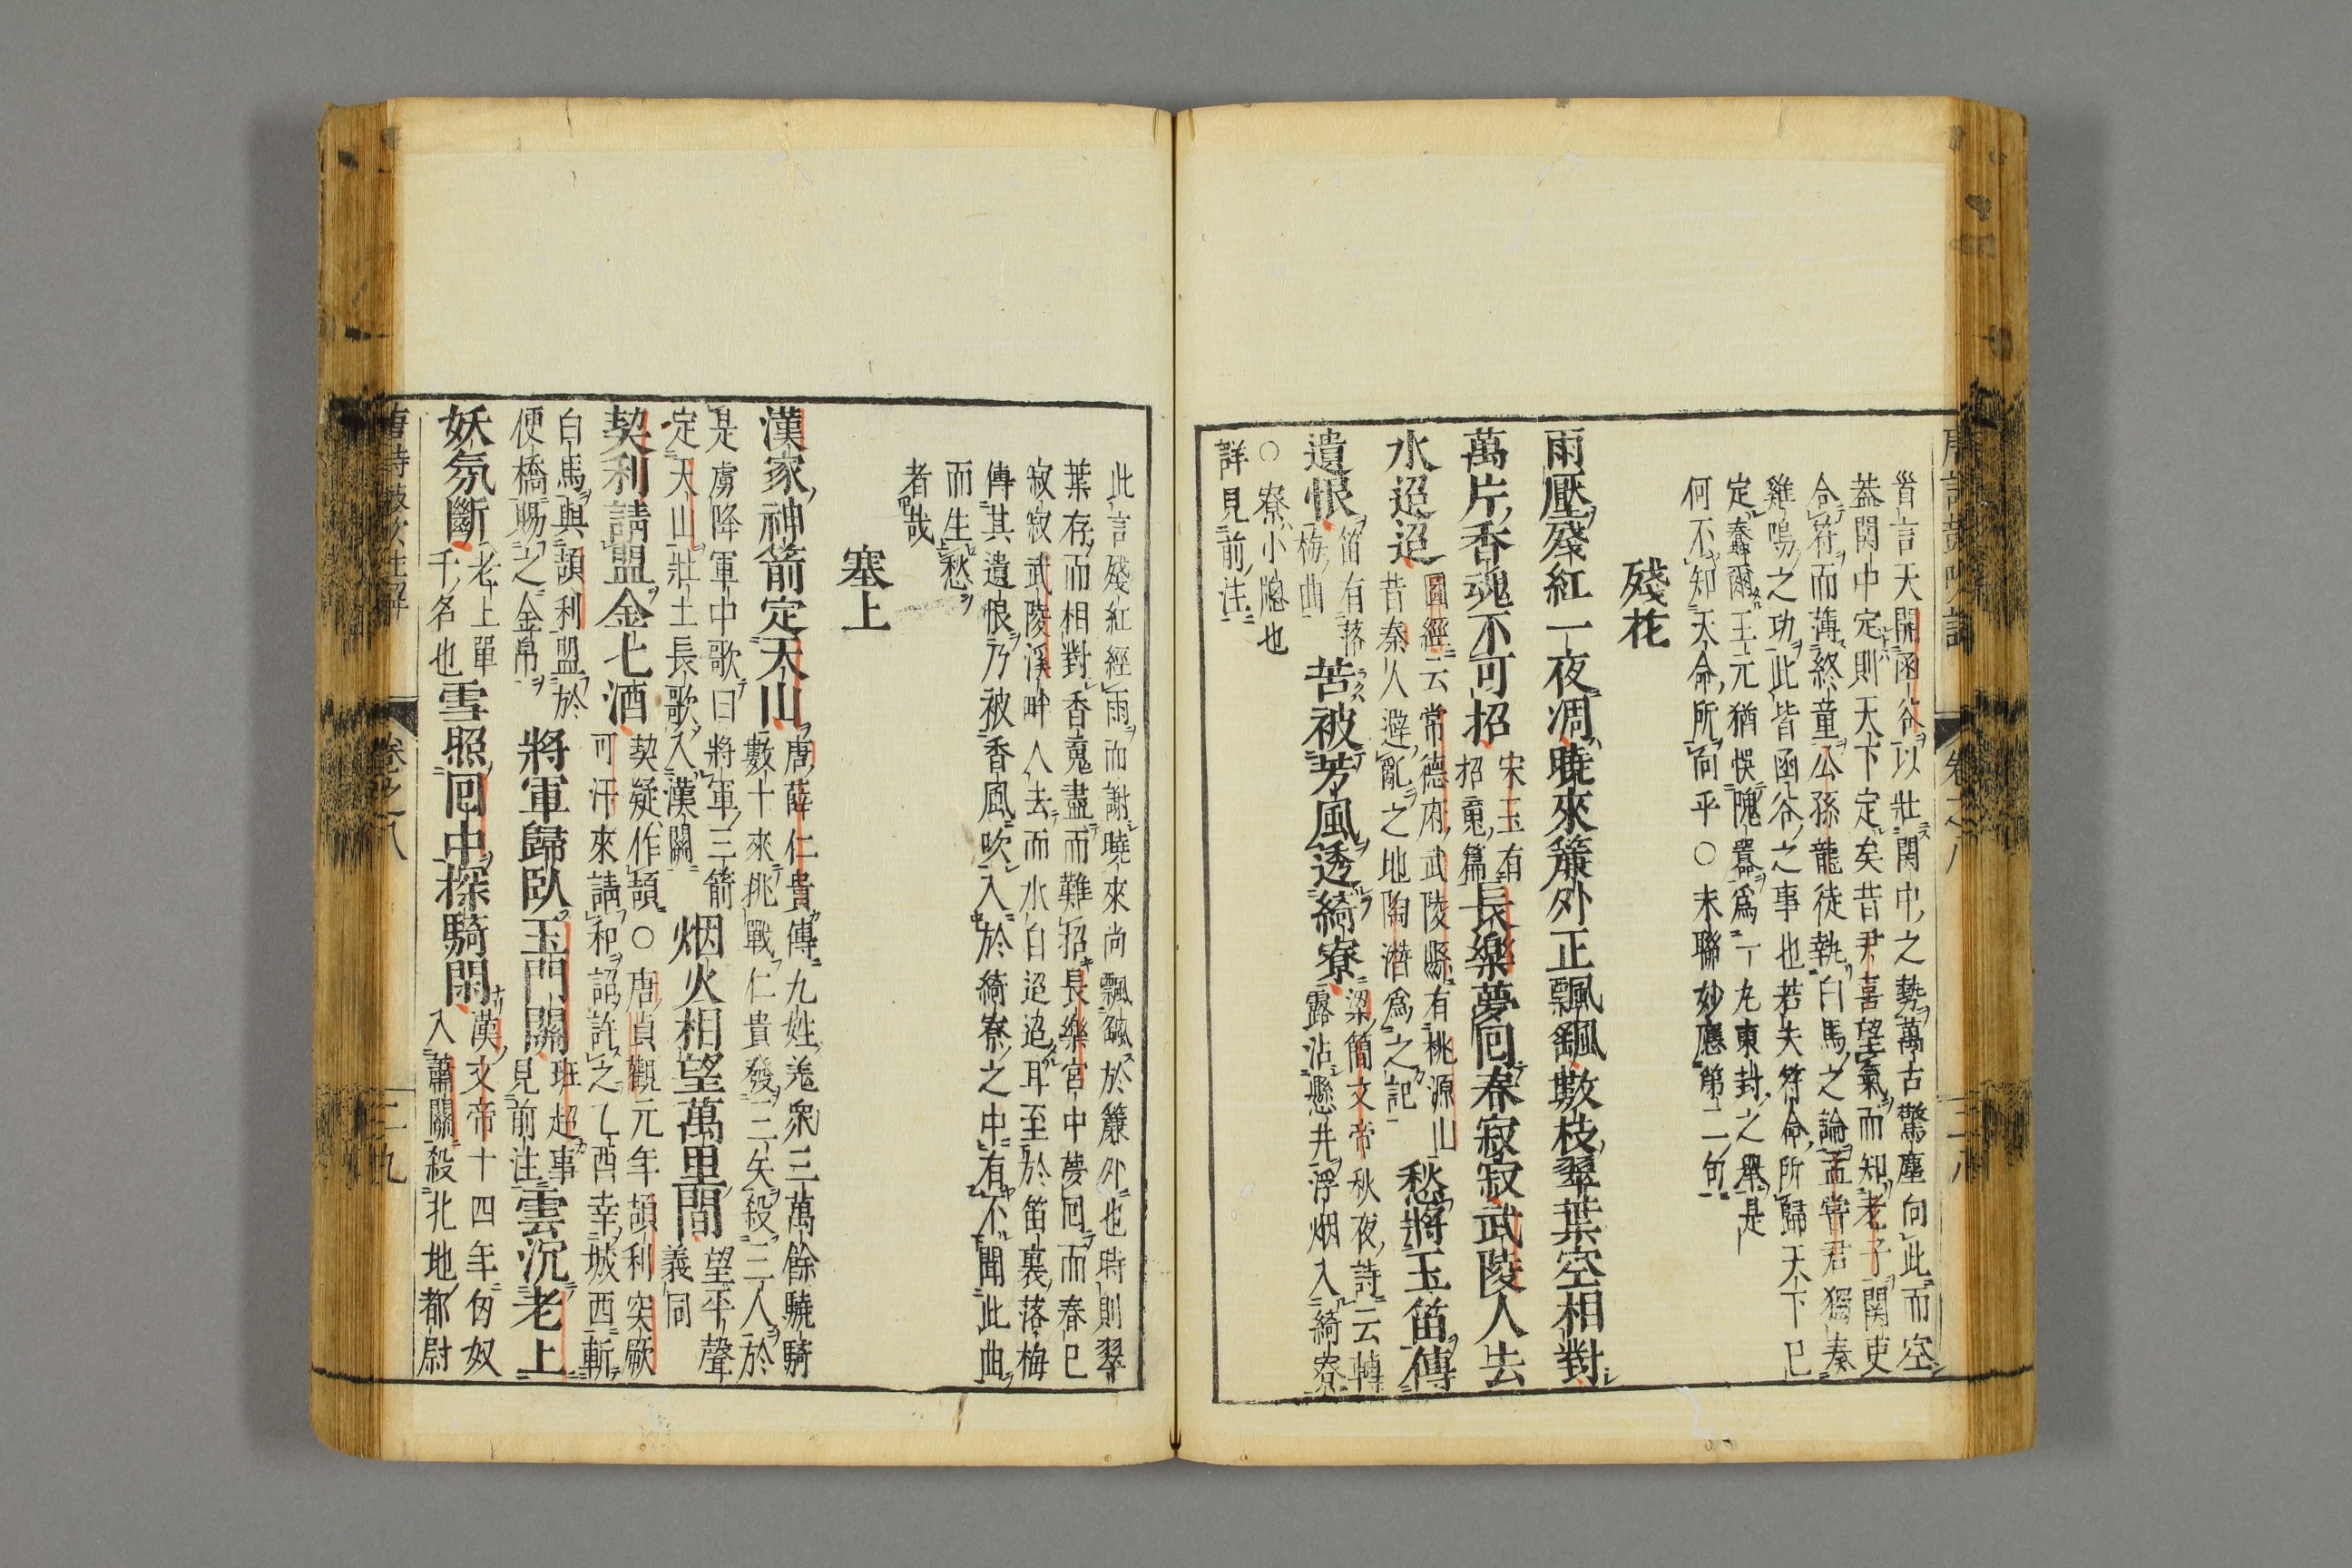 首言天開函谷以壯関中之勢萬古驚塵向此而空
葢関中定則天下定矣昔尹喜望氣而知老子関吏
合符而薄終童公孫龍徒執白馬之論孟嘗君獨奏
雞鳴之功此皆函谷之事也若夫符命所歸天下已
定蠢爾王元猶悞隗囂爲一丸東封之舉是
何不知天命所向乎○末聯妙應第二句
殘花
雨壓殘紅一夜凋曉來簾外正飄颻數枝翠葉空相對
萬片香魂不可招
宋玉有
招䰟篇
長樂夢回春寂寂武陵人去
水迢迢
圖經云常德府武陵縣有桃源山
昔秦人避亂之地陶潛爲之記
愁將玉笛傳
遺恨
笛有落
梅曲
苦被芳風透綺寮
梁簡文帝秋夜詩云轉
露沾懸井浮烟入綺寮
○寮小牕也
詳見前注
此言殘紅經雨而謝曉來尚飄颻於簾外也時則翠
葉存而相對香䰟盡而難招長樂宮中夢回而春已
寂寂武陵溪畔人去而水自迢迢耳至於笛裏落梅
傳其遺恨乃被香風吹入於綺寮之中有不聞此曲
而生愁
者哉
塞上
漢家神箭定天山
唐薛仁貴傳九姓羌衆三萬餘驍騎
數十來挑戰仁貴發三矢殺三人於
是虜降軍中歌曰將軍三箭
定天山壯士長歌入漢關
烟火相望萬里間
望平聲
義同
契利請盟金匕酒
契疑作頡○唐貞觀元年頡利突厥
可汗來請和詔許之乙酉幸城西斬
白馬與頡利盟於
便橋賜之金帛
將軍歸臥玉門關
班超事
見前注
雲沉老上
妖氛斷
老上單
于名也
雪照回中探騎閑
漢文帝十四年匈奴
入蕭關殺北地都尉
唐詩鼓吹註解
卷之八
三九